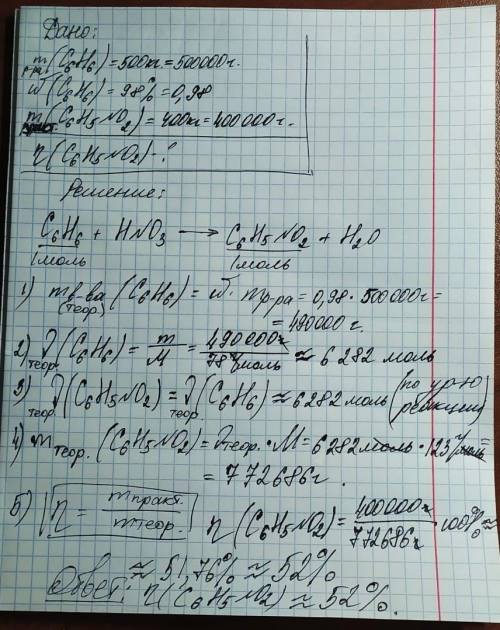 Дано:
m р-ра (C₆H₆) = 500кг = 500000г.
ω (C₆H₆) = 98% = 0,98
m практ. (C₆H₅NO₂) = 400кг = 400000г.
η (C₆H₅NO₂) - ?
Решение:
C₆H₆ + HNO₃ → C₆H₅NO₂ + H₂O
1моль 1моль
1) m в-ва (теор.) (C₆H₆) = ω · m р-ра = 0,98 · 500000г =
= 490000 г.
2) ν теор. (C₆H₆) = m/M = 490000г/78 г/моль ≈ 6282 моль
3) ν теор. (C₆H₅NO₂) = ν теор. (C₆H₆) ≈ 6282 моль (по ур-ю реакции)
4) m теор. (C₆H₅NO₂) = ν теор. · M = 6282 моль · 123 г/моль =
= 772686г.
5) η = m практ./m теор. η (C₆H₅NO₂) = 400000г/772686г · 100% ≈
≈ 51,76% ≈ 52%
Ответ: η (C₆H₅NO₂) ≈ 52%.